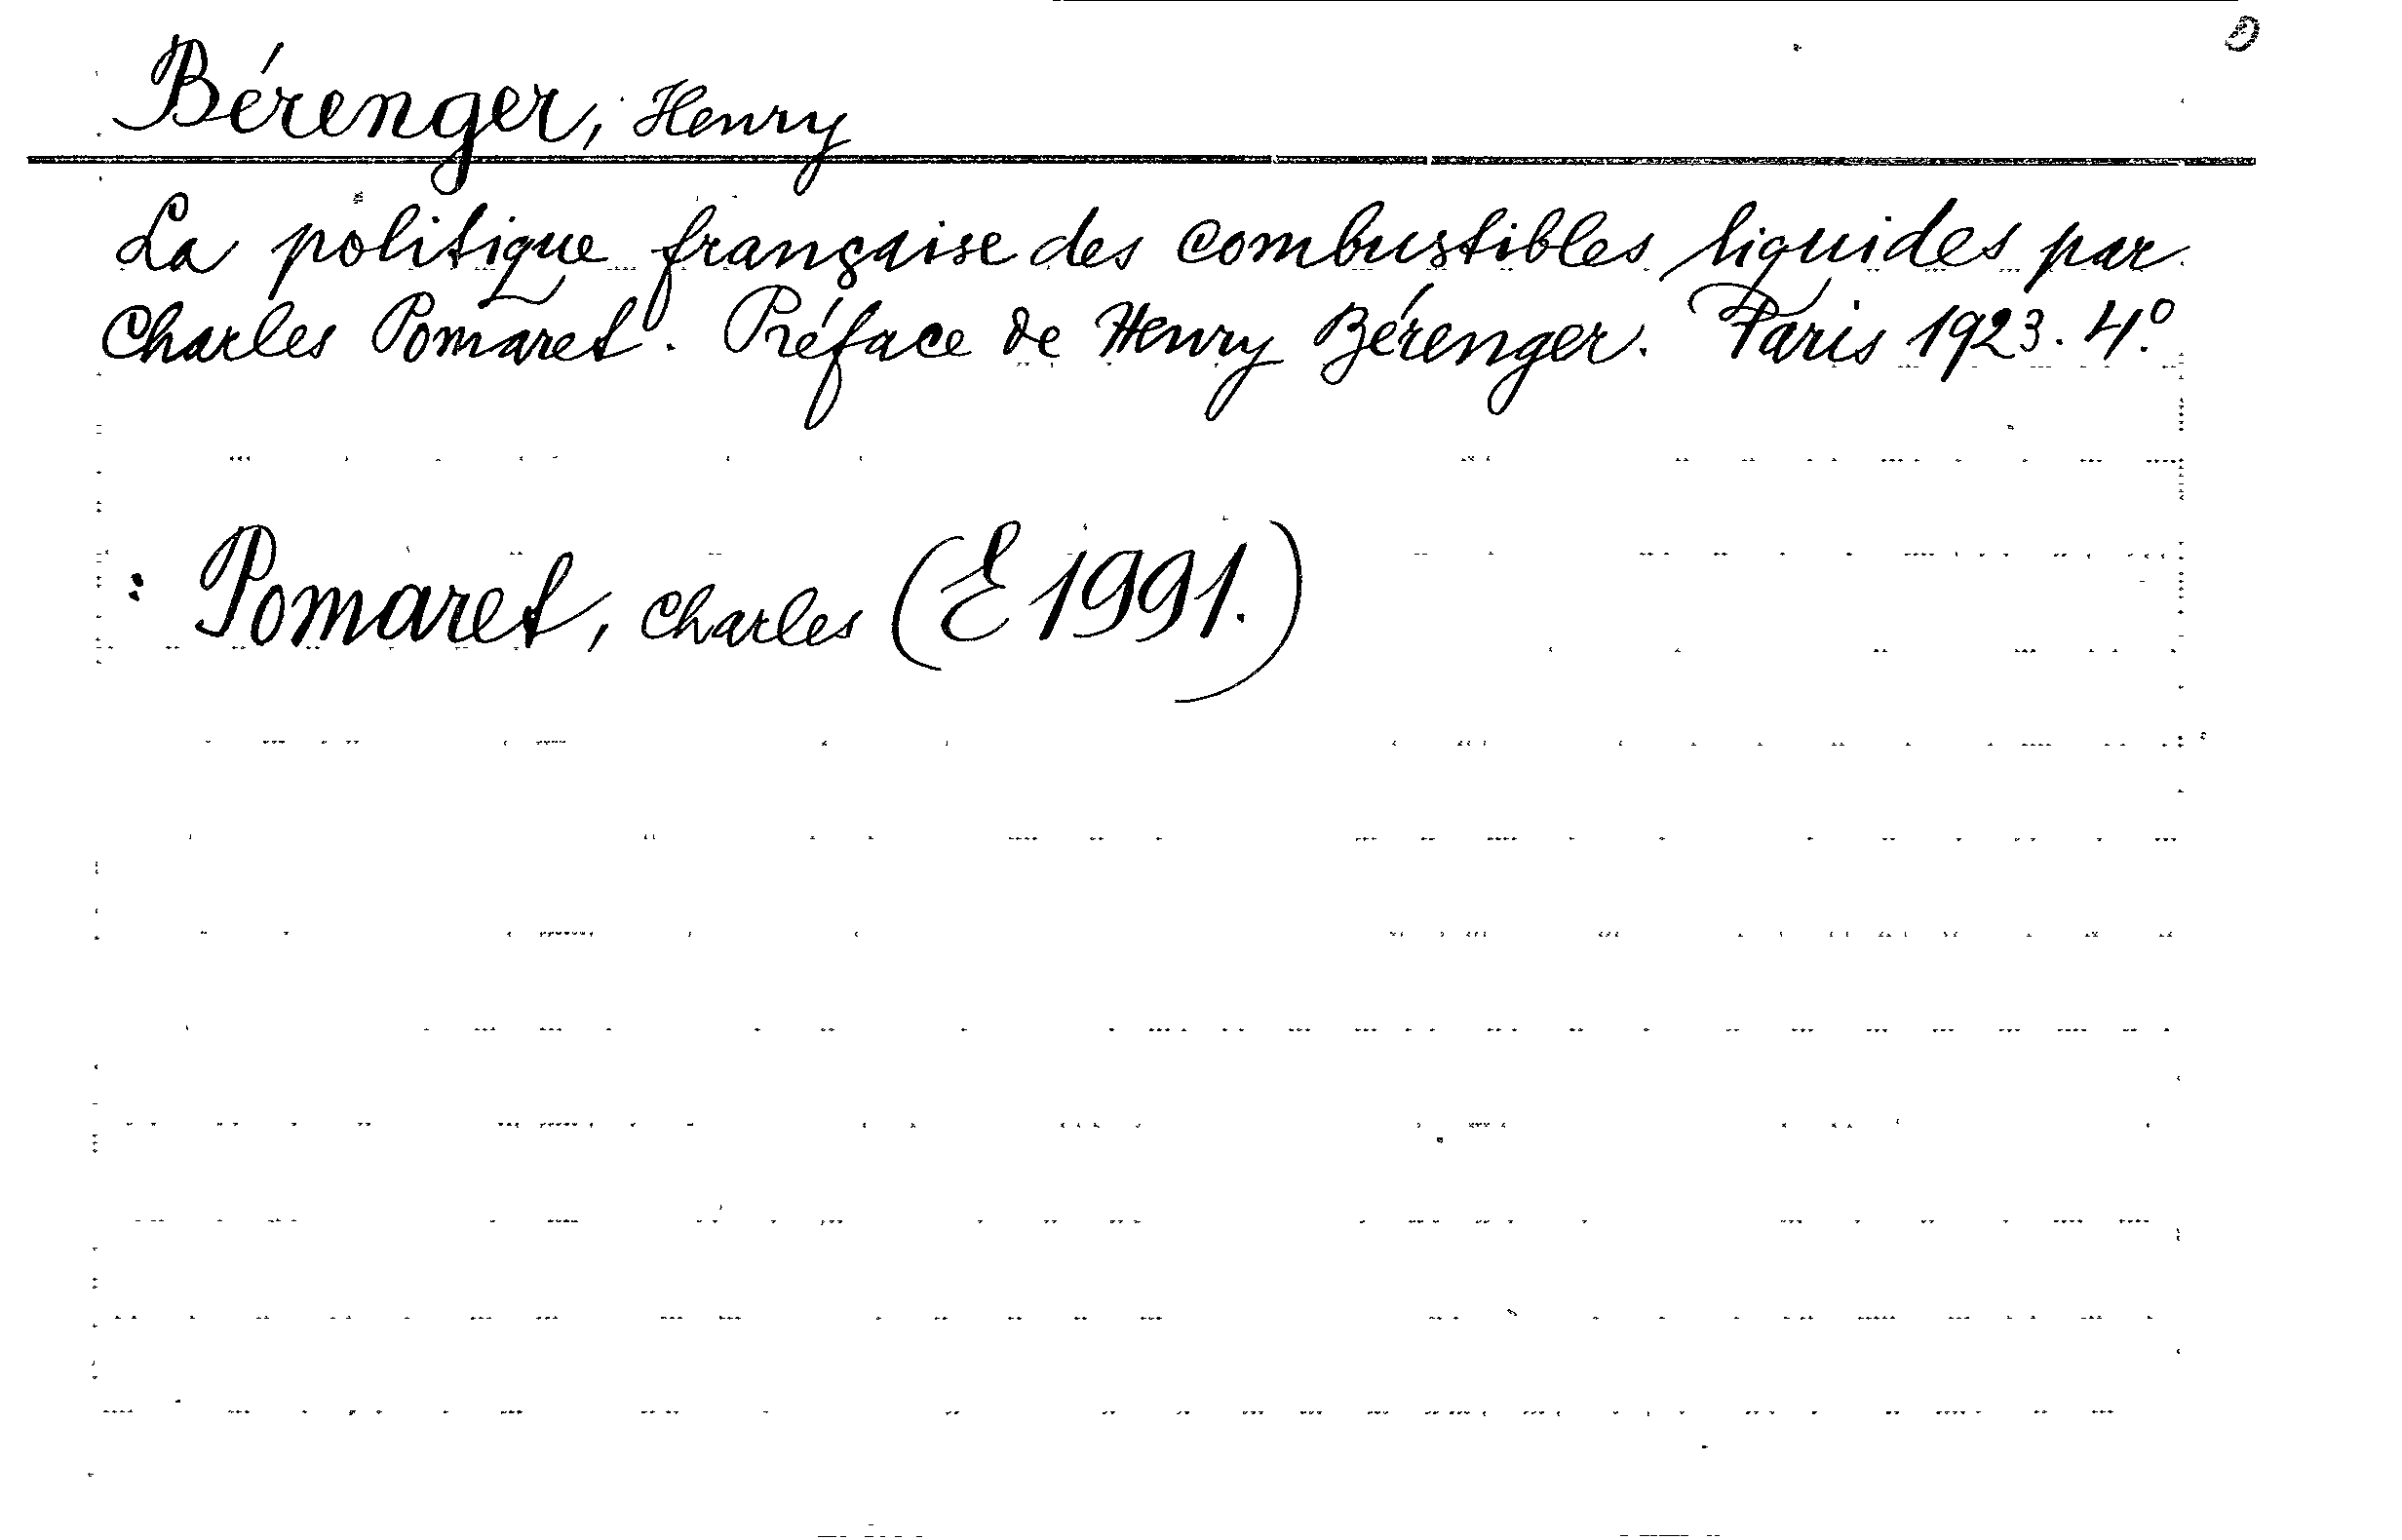 Bérenger, Henry
La politique française des combustibles liquides par
Charles Pomaret. Préface de Henry Bérenger. Paris 1923. 4º.
: Pomaret, Charles (E 1991.)